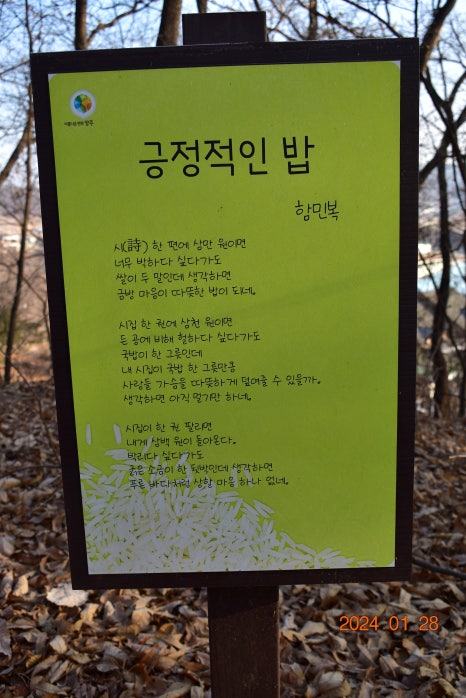 긍정적인 밥
함민복
시(詩) 한 편에 삼만 원이면
너무 박하다 싶다가도
쌀이 두 말인데 생각하면
금방 마음이 따뜻한 밥이 되네.
시집 한 권에 삼천 원이면
든 공에 비해 헐하다 싶다가도
국밥이 한 그릇인데
내 시집이 국밥 한 그릇만큼
사람들 가슴을 따뜻하게 덮여줄 수 있을까.
생각하면 아직 멀기만 하네.
시집이 한 권 팔리면
내게 삼백 원이 돌아온다.
박리다 싶다가도
굵은 소금이 한 됫박인데 생각하면
푸른 바다처럼 상할 마음 하나 없네.
2024 01 28